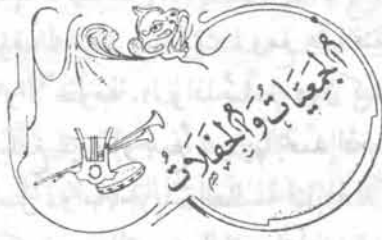 الجَمعيَات وَالحَفلَاتُ